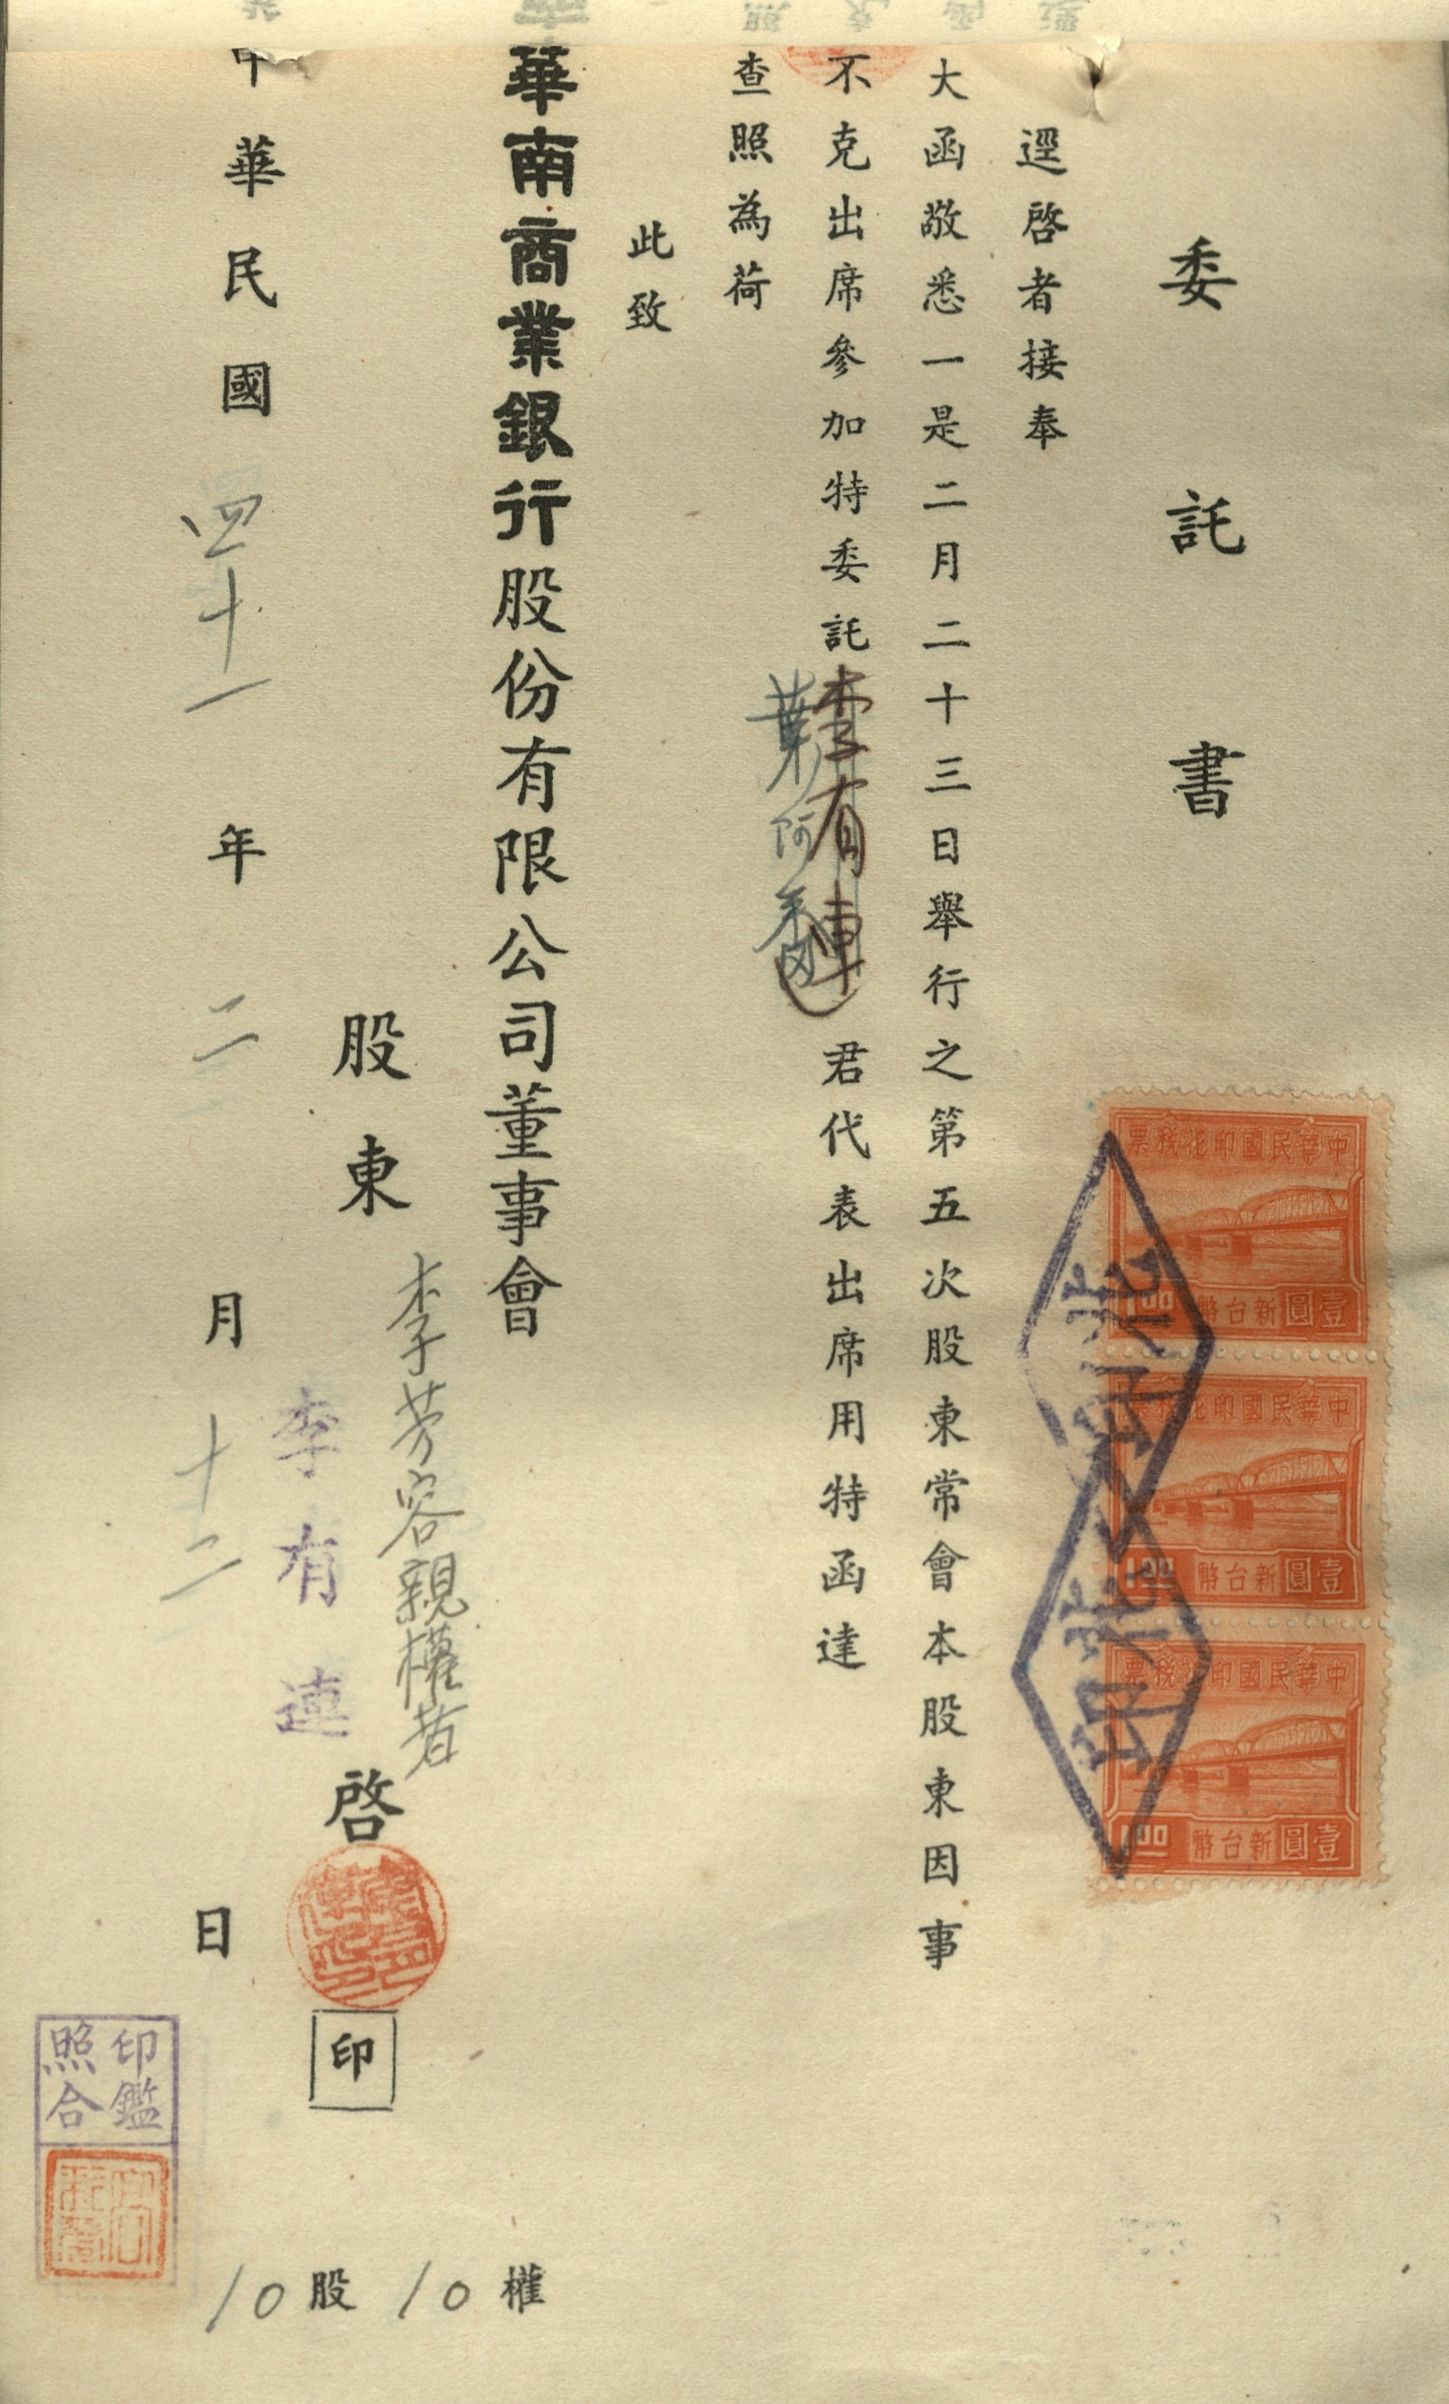 委託書
逕啓者接奉
大函敬悉一是二月二十三日舉行之第五次股東常會本股東因事
不克出席參加特委託李有連君代表出席用特函達
葉阿
查照為荷
此致
華南商業銀行股份有限公司董事會
股東李芳容親權者啓
李有連
印
中華民國四十一年二月十二日
印鑑
照合
10股10權
中華民國印花稅票
1.00
新台幣壹圓
中華民國印花稅票
1.00
新台幣壹圓
中華民國印花稅票
1.00
新台幣壹圓